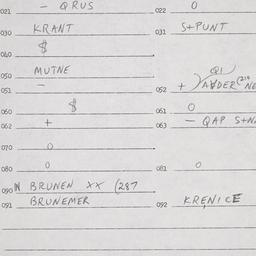 021 - QRUS 022 0
030 KRANT 031 S+PUNT
040 $
050 MUTNE
051 - 052 +
060 $ 061 0
062 + 063 - QAP
070 0
080 0 081 0
090 N BRUNEN XX (287
091 BRUNEMER 092 KRENICE